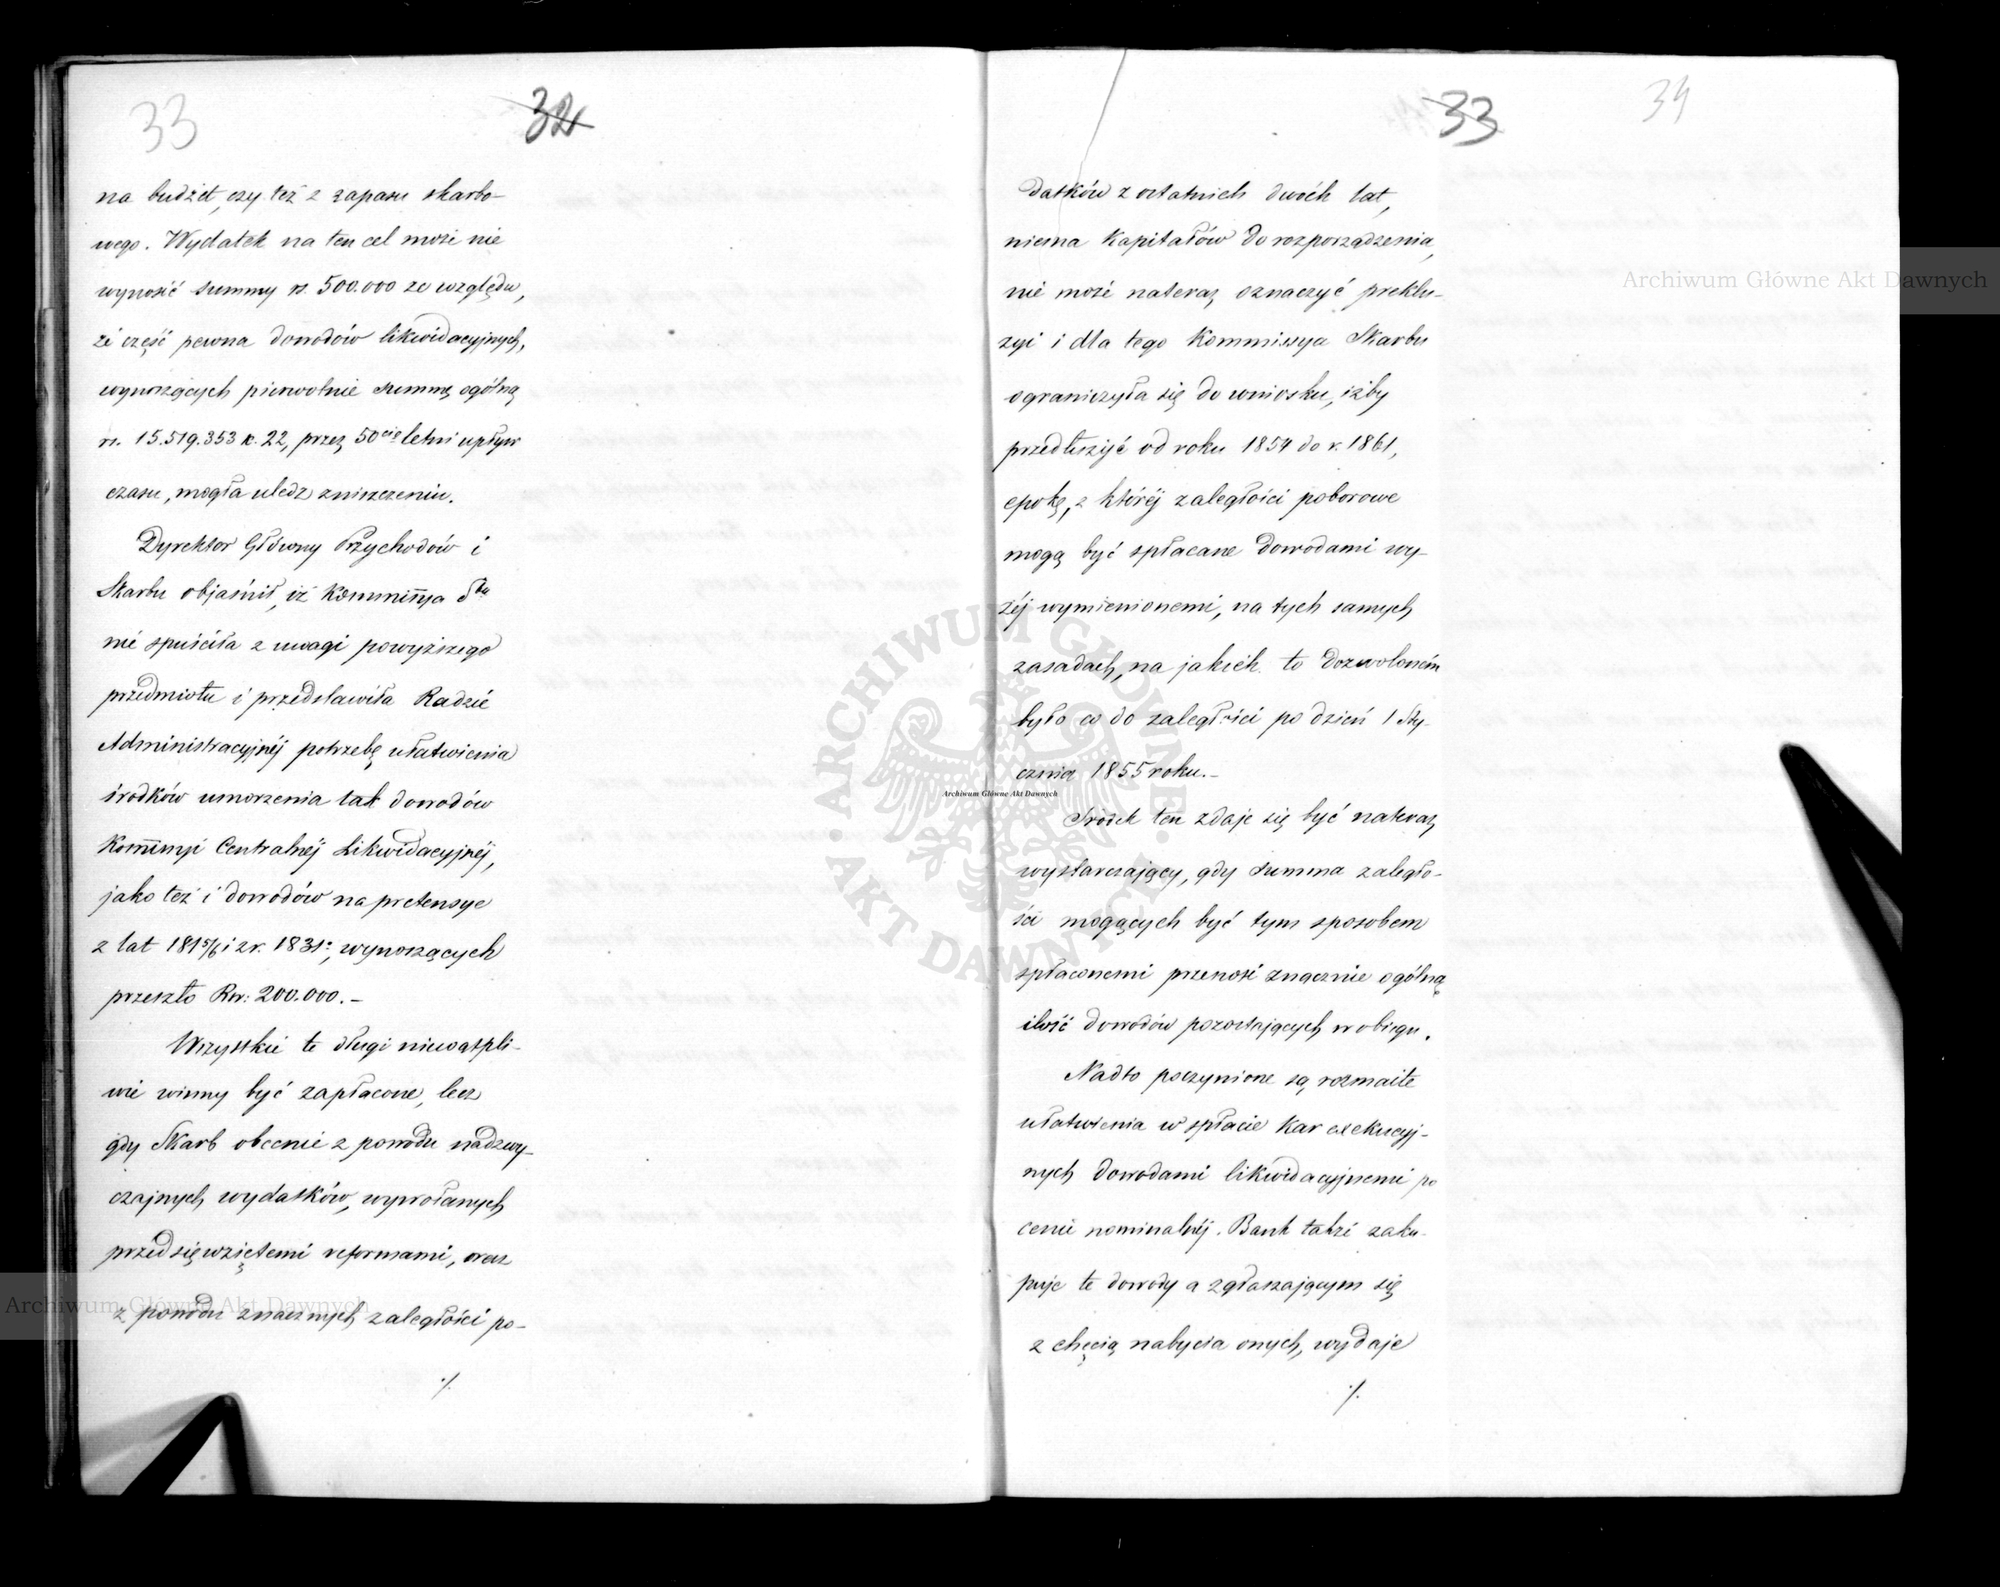 33
32
na budżet, czy też z zapasu skarbo-
wego. Wydatek na ten cel może nie
wynosić summy rs. 500.000 ze względu,
że część pewna dowodów likwidacyjnych,
wynoszących pierwotnie summę ogólną
rs. 15.519.353 k. 22, przez 50cio letni upływ
czasu, mogła uledz zniszczeniu.
Dyrektor Główny Przychodów i
Skarbu objaśnił, iż Kommissya Sbu
nie spuściła z uwagi powyższego
przedmiotu i przedstawiła Radzie
Administracyjnéj potrzebę ułatwienia
środków umorzenia tak dowodów
Kommissyi Centralnéj Likwidacyjnéj,
jako też i dowodów na pretensye
z lat 1815/6 i z r. 1831., wynoszących
przeszło Rsr: 200.000.-
Wszystkie te długi niewątpli-
wie winny być zapłacone, lecz
gdy Skarb obecnie z powodu nadzwy-
czajnych wydatków, wywołanych
przedsięwziętemi reformami, oraz
z powodu znacznych zaległości po-
./.
33
34
datków z ostatnich dwóch lat,
niema kapitałów do rozporządzenia,
nie może nateraz oznaczyć preklu-
zyi i dla tego Kommissya Skarbu
ograniczyła się do wniosku, iżby
przedłużyć od roku 1854 do r. 1861,
epokę, z któréj zaległości poborowe
mogą być spłacane dowodami wy-
żéj wymienionemi, na tych samych
zasadach, na jakich to dozwoloném
było co do zaległości po dzień 1 Sty-
cznia 1855 roku.-
Środek ten zdaje się być nateraz
wystarczający, gdy summa zaległo-
ści mogących być tym sposobem
spłaconemi przenosi znacznie ogólną
ilość dowodów pozostających w obiegu.
Nadto poczynione są rozmaite
ułatwienia w spłacie kar exekucyj-
nych dowodami likwidacyjnemi po
cenie nominalnéj. Bank także zaku-
puje te dowody a zgłaszającym się
z chęcią nabycia onych, wydaje
./.
Archiwum Główne Akt Dawnych
Archiwum Główne Akt Dawnych
Archiwum Główne Akt Dawnych
ARCHIWUM GŁÓWNE AKT DAWNYCH